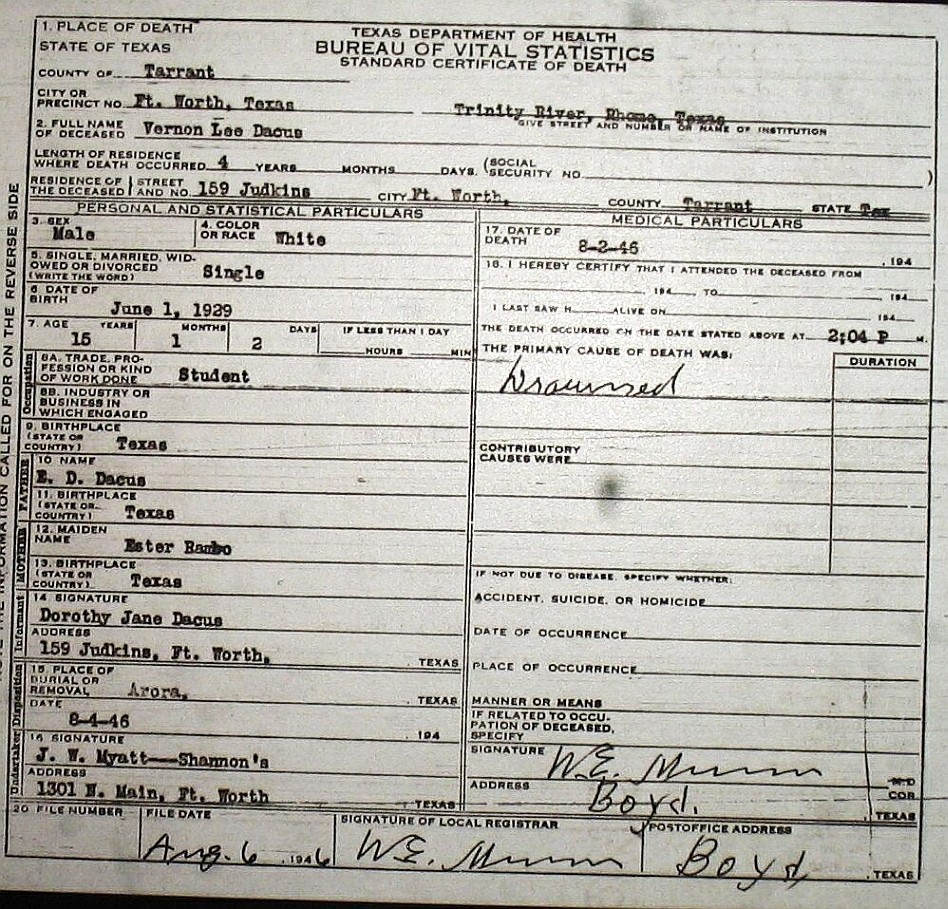 1. PLACE OF DEATH
STATE OF TEXAS
TEXAS DEPARTMENT OF HEALTH
BUREAU OF VITAL STATISTICS
STANDARD CERTIFICATE OF DEATH
COUNTY OF Tarrant
CITY OR PRECINCT NO. Ft. Worth, Texas
Trinity River, Rhome, Texas
GIVE STREET AND NUMBER OR NAME OF INSTITUTION
2. FULL NAME OF DECEASED Vernon Lee Dacus
LENGTH OF RESIDENCE WHERE DEATH OCCURRED 4 YEARS MONTHS DAYS. (SOCIAL SECURITY NO. )
RESIDENCE OF THE DECEASED STREET AND NO. 159 Judkins CITY Ft. Worth, COUNTY Tarrant STATE Tex
PERSONAL AND STATISTICAL PARTICULARS
3. SEX Male
4. COLOR OR RACE White
5. SINGLE, MARRIED, WIDOWED OR DIVORCED (WRITE THE WORD) Single
6 DATE OF BIRTH June 1, 1929
7. AGE YEARS MONTHS DAYS IF LESS THAN 1 DAY
15 1 2 HOURS MIN
Occupation
8A. TRADE, PROFESSION OR KIND OF WORK DONE Student
8B. INDUSTRY OR BUSINESS IN WHICH ENGAGED
9. BIRTHPLACE (STATE OR COUNTRY) Texas
FATHER
10 NAME
E. D. Dacus
11. BIRTHPLACE (STATE OR COUNTRY) Texas
MOTHER
12. MAIDEN NAME Ester Rambo
13. BIRTHPLACE (STATE OR COUNTRY) Texas
Informant
14. SIGNATURE
Dorothy Jane Dacus
ADDRESS
159 Judkins, Ft. Worth, TEXAS
Disposition
15. PLACE OF BURIAL OR REMOVAL Arora, TEXAS
DATE
8-4-46 194
Undertaker
16 SIGNATURE
J. W. Myatt---Shannon's
ADDRESS
1301 N. Main, Ft. Worth TEXAS
MEDICAL PARTICULARS
17. DATE OF DEATH 8-2-46 , 194
18. I HEREBY CERTIFY THAT I ATTENDED THE DECEASED FROM
194 TO 194
I LAST SAW H ALIVE ON 194
THE DEATH OCCURRED ON THE DATE STATED ABOVE AT 2:04 P M.
THE PRIMARY CAUSE OF DEATH WAS: DURATION
Drowned
CONTRIBUTORY CAUSES WERE
IF NOT DUE TO DISEASE, SPECIFY WHETHER:
ACCIDENT, SUICIDE, OR HOMICIDE
DATE OF OCCURRENCE
PLACE OF OCCURRENCE
MANNER OR MEANS
IF RELATED TO OCCUPATION OF DECEASED, SPECIFY
SIGNATURE W.E. M.D
ADDRESS Boyd. COR , TEXAS
20 FILE NUMBER
FILE DATE
Aug. 6 , 1946
SIGNATURE OF LOCAL REGISTRAR
W.E.
POSTOFFICE ADDRESS
Boyd , TEXAS
THE INFORMATION CALLED FOR ON THE REVERSE SIDE